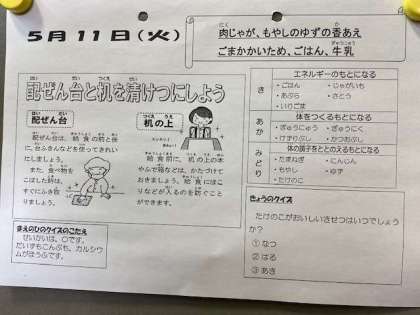 ５月１１日(火)
肉じゃが、もやしのゆずの香あえ
ごまかかいため、ごはん、牛乳
配ぜん台と机を清けつにしよう
配ぜん台
机の上
給食の前と後
に、台ふきんなどを使ってきれい
にしましょう。
また、食べ物を
こぼした時は、
すぐにふき取
りましょう。
給食前に、机の上の本
やふで箱などは、かたづけて
おきましょう。給食にほこ
りなどが入るのを防ぐこと
ができます。
まえのひのクイズのこたえ
せいかいは、〇です。
だいずもこんぶも、カルシウ
ムがほうふです。
エネルギーのもとになる
き
・ごはん ・じゃがいも
・あぶら ・さとう
・いりごま
体をつくるもとになる
あか
・ぎゅうにゅう ・ぎゅうにく
・けずりぶし ・かつおぶし
体の調子をととのえるもとになる
みどり
・たまねぎ ・にんじん
・もやし ・ゆず
・たけのこ
きょうのクイズ
たけのこがおいしいきせつはいつでしょう
か？
① なつ
② はる
③ あき